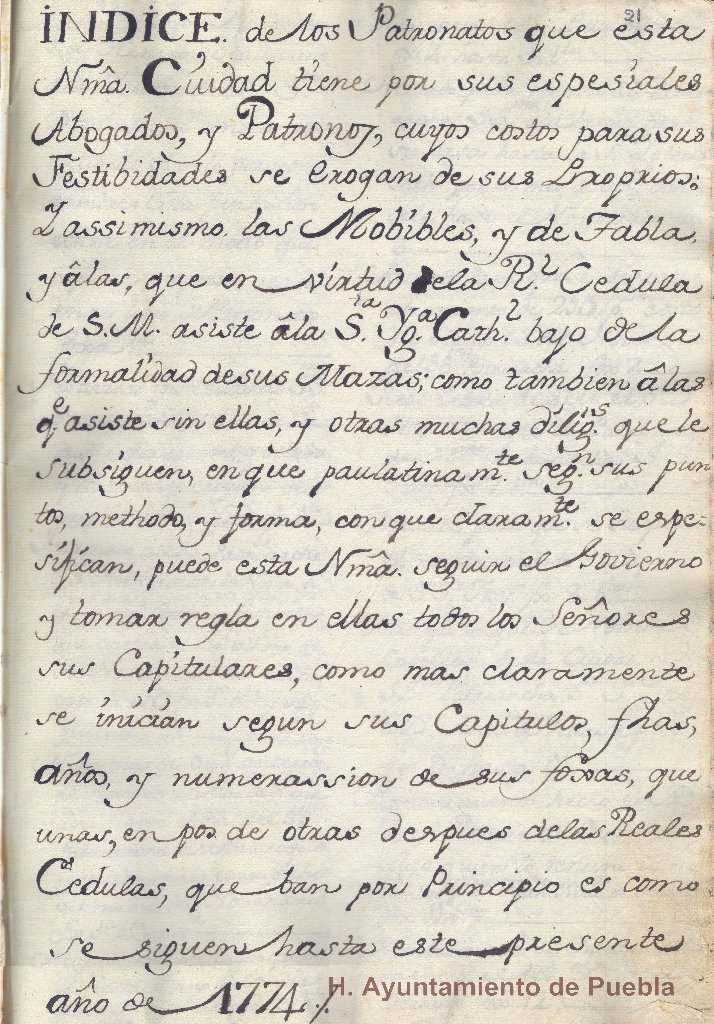 21
INDICE. de los Patronatos que esta
Nmâ. Ciudad tiene por sus espesiales
Abogados, y Patronos, cuyos costos para sus
Festibidades se erogan de sus Proprios;
Y assimismo. las Mobibles, y de Tabla,
y âlas, que en virtud dela R.l Cedula
de S.M. asiste âla S.ta Yg.a Cath.l bajo de la
formalidad de sus Mazas; como tambien âlas
qe asiste sin ellas, y otras muchas dilig.s que le
subsiguen, en que paulatinam.te seg.n sus pun
tos, methodo, y forma, con que claram.te se espe-
sifican, puede esta Nmâ. seguir el Govierno
y tomar regla en ellas todos los Señores
sus Capitulares, como mas claramente
se inician segun sus Capitulos, fhas,
años, y numerassion de sus foxas, que
unas, en pos de otras despues delas Reales
Cedulas, que ban por Principio es como
se siguen hasta este presente
año de 1774./.
H. Ayuntamiento de Puebla